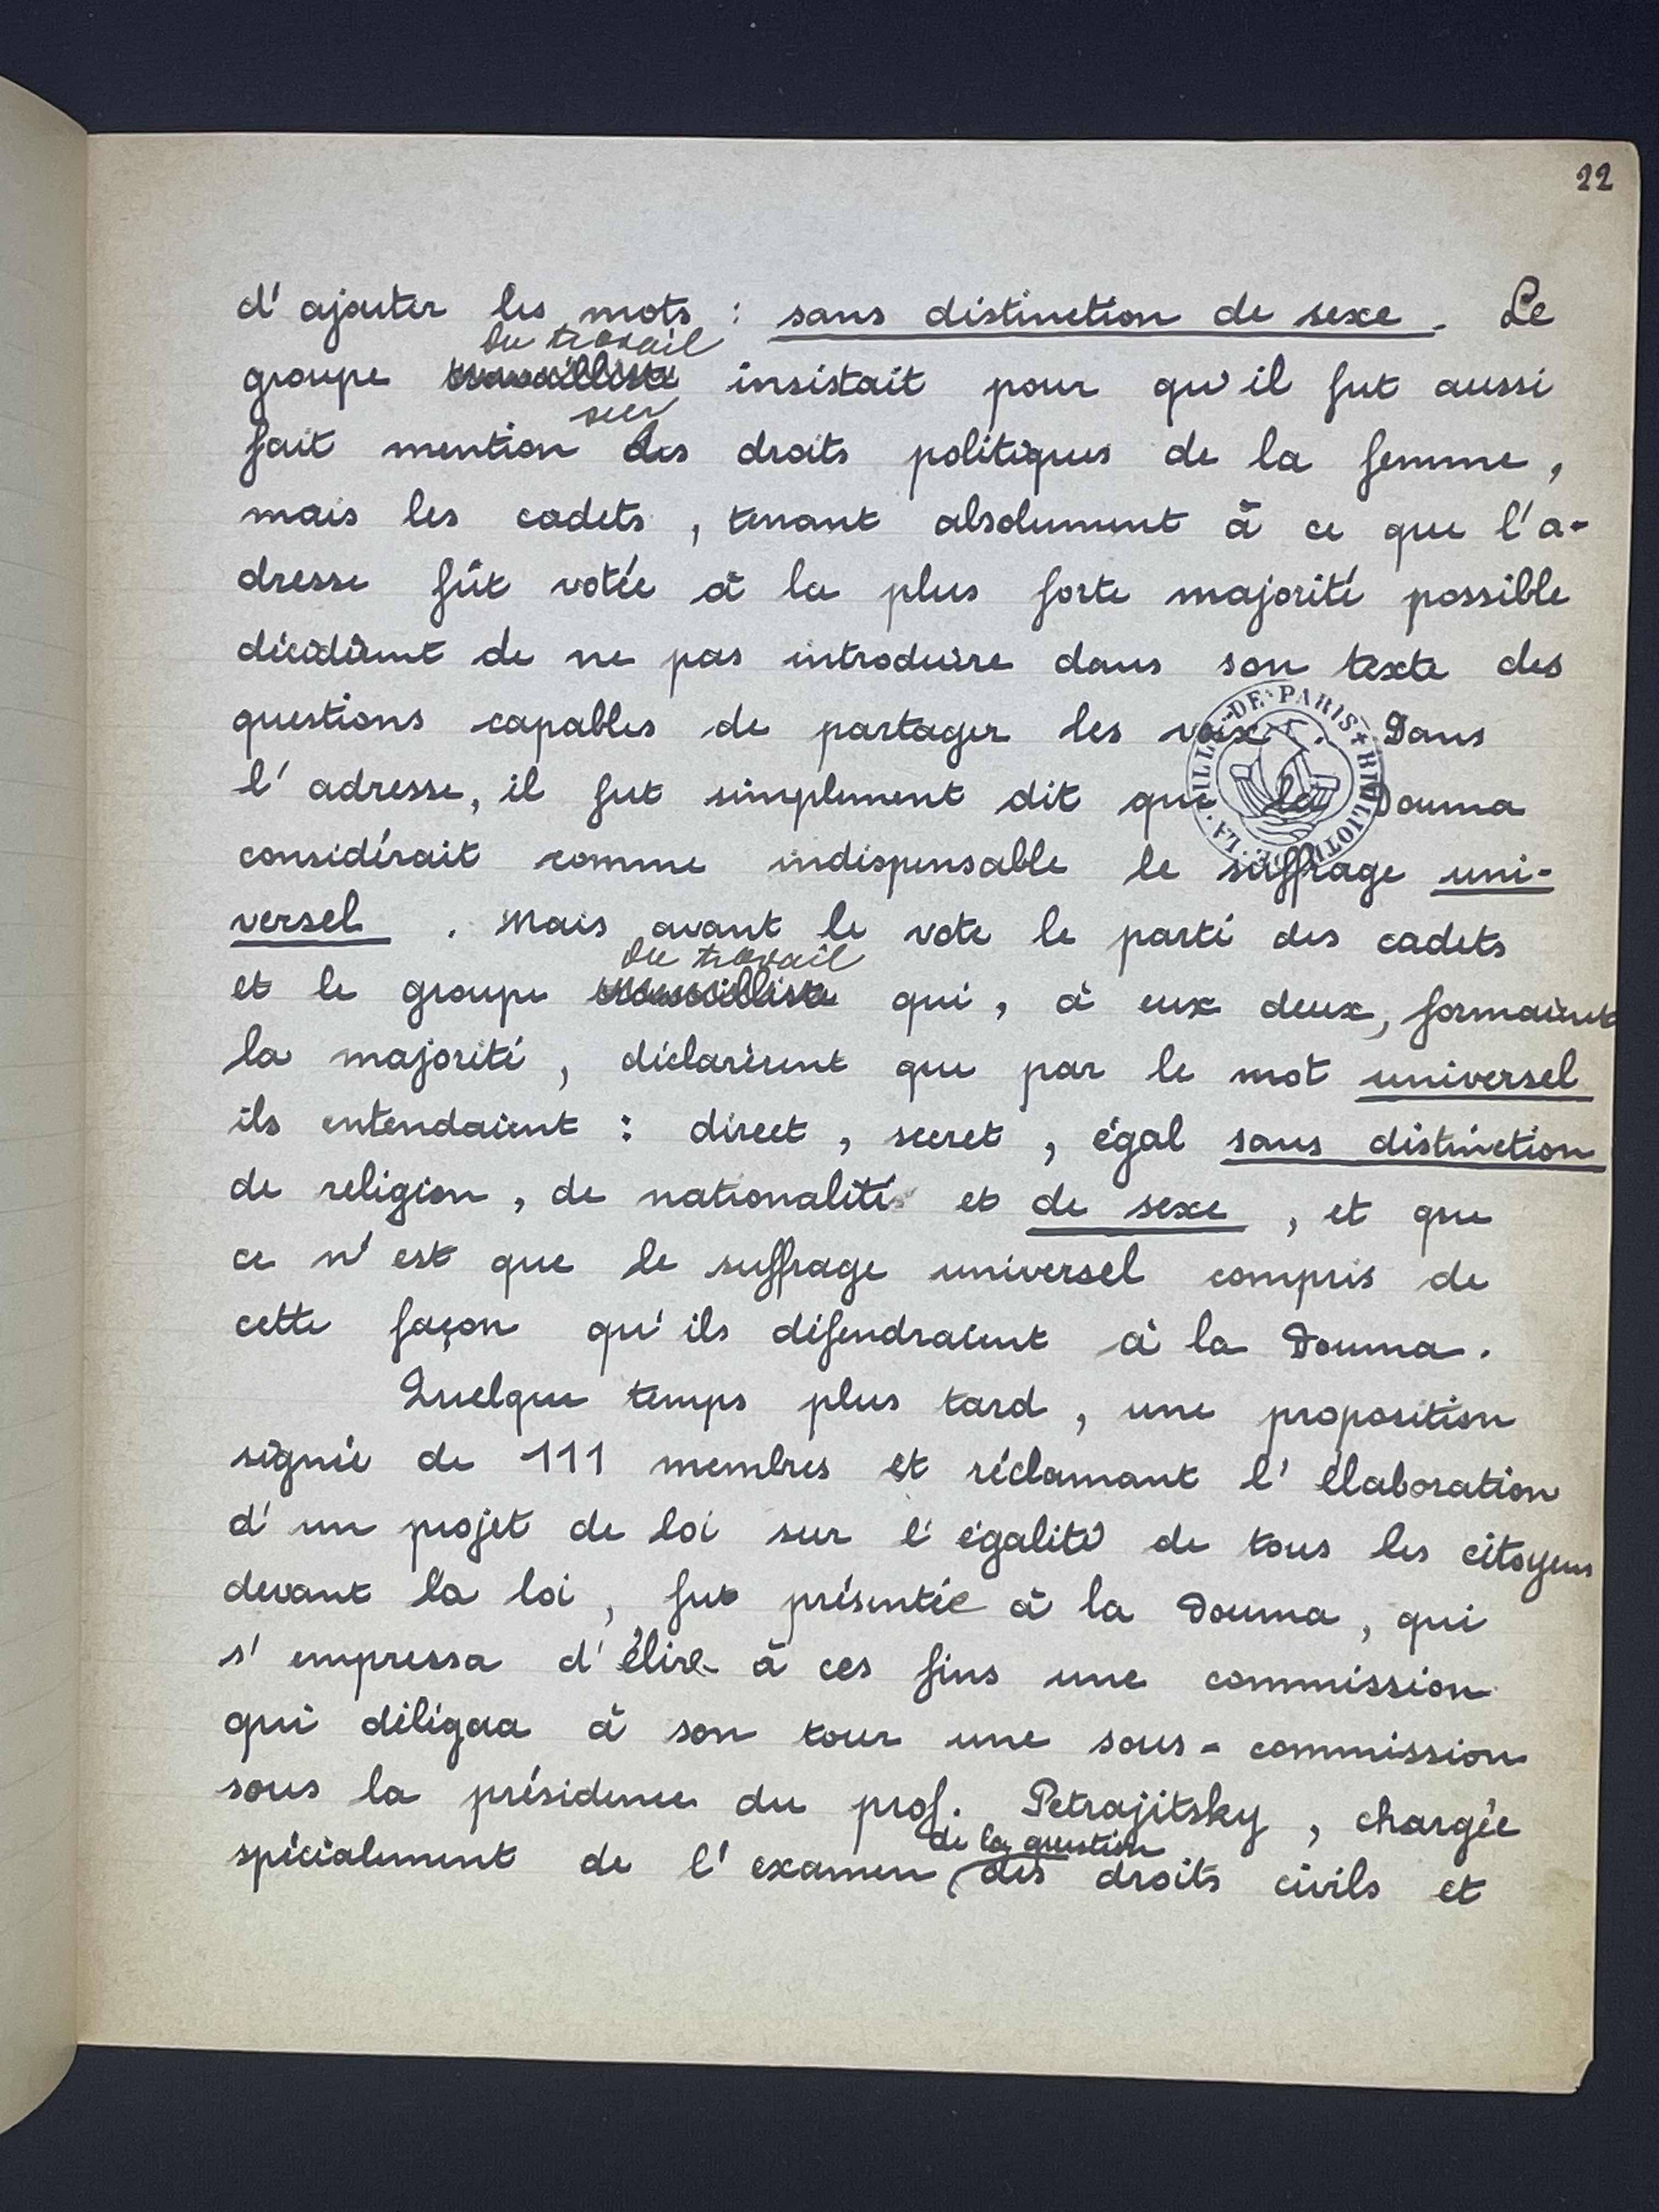 22
d'ajouter les mots : sans distinction de sexe. Le
du travail
groupe travailliste insistait pour qu'il fut aussi
sur
fait mention des droits politiques de la femme,
mais les cadets, tenant absolument à ce que l'a-
dresse fût votée à la plus forte majorité possible
décidèrent de ne pas introduire dans son texte des
questions capables de partager les voix. Dans
l'adresse, il fut simplement dit que la Douma
considérait comme indispensable le suffrage uni-
versel. Mais avant le vote le parti des cadets
du travail
et le groupe travailliste qui, à eux deux, formaient
la majorité, déclarèrent que par le mot universel
ils entendaient : direct, secret, égal sans distinction
de religion, de nationalité et de sexe, et que
ce n'est que le suffrage universel compris de
cette façon qu'ils défendraient à la Douma.
Quelque temps plus tard, une proposition
signée de 111 membres et réclamant l'élaboration
d'un projet de loi sur l'égalité de tous les citoyens
devant la loi, fut présentée à la Douma, qui
s'empressa d'élire à ces fins une commission
qui délégaa à son tour une sous-commission
sous la présidence du prof. Petrajitsky, chargée
de la question
spécialement de l'examen des droits civils et
VILLE DE PARIS * BIBLIOTHEQUE * LA